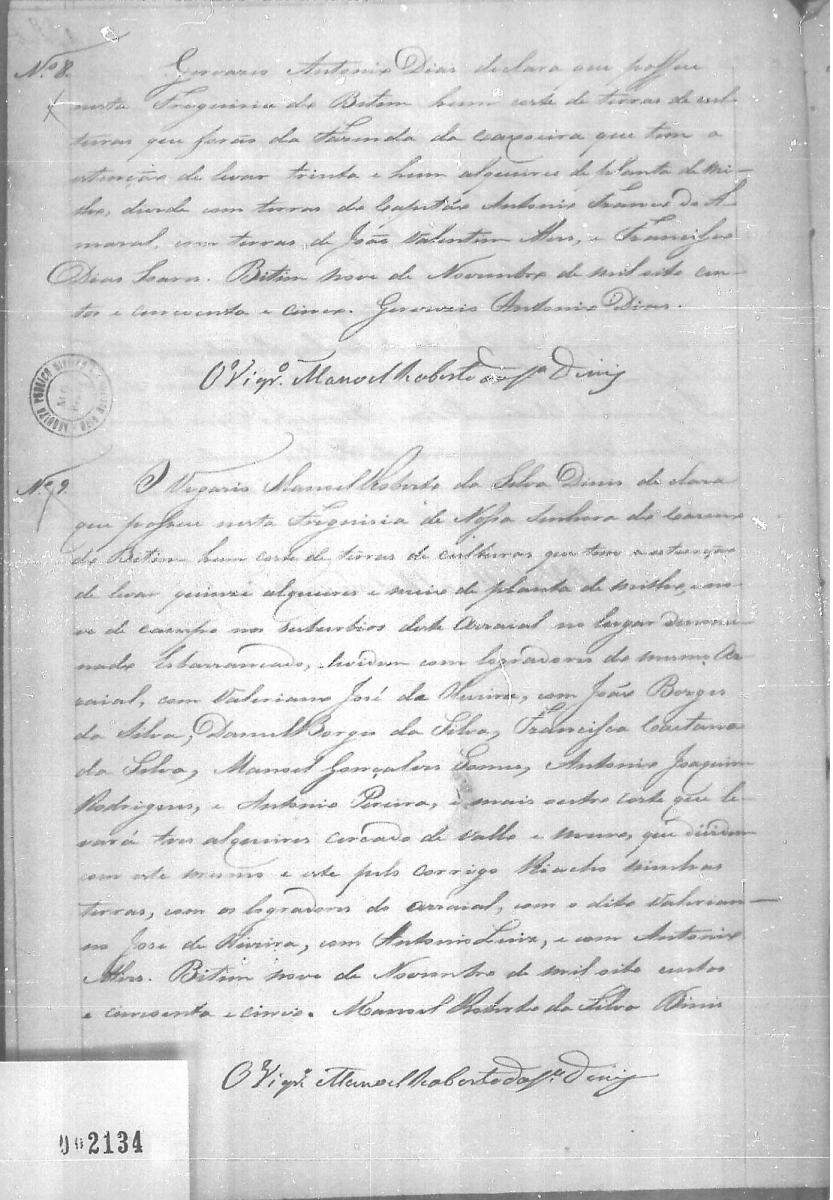 Nº 8.
Gervazio Antonio Dias declara que possue
nesta Freguisia do Bitim hum corte de terras de cul-
turas que forão da Fazenda da Caxoeira que tem a
estenção de levar trinta e hum alqueires de planta de mi-
lho, divide com terras do Capitão Antonio Franco do A-
maral, com terras de João Valentim Alvs, e Francisco
Dias Bitim nove de Novembro de mil oito cen-
tos e cincoenta e cinco. Gervazio Antonio Dias.
O Vigrº. Manoel Roberto da Sª Diniz
Nº 9.
O Vigario Manoel Roberto da Silva Dinis declara
que possue nesta Freguisia de Nossa Senhora do Carmo
do Bitim hum corte de terras de culturas que tem a estenção
de levar quinze alqueires e meio de planta de milho,
de campo nos suburbios deste Arraial no lugar denomi-
nado Esbarrancado, dividem com logradores do mesmo Ar-
raial, com Valeriano José de Oliveira, com João Borges
da Silva, Daniel Borges da Silva, Francisca Caetana
da Silva, Manoel Gonçalves Gomes, Antonio Joaquim
Rodrigues, e Antonio Pereira, e mais outro corte que le-
vará tres alqueires cercado de vallo e muro, que dividem
com este mesmo e este pelo corrigo Riacho minhas
terras, com os logradores do arraial, com o dito Valerian-
no José de Oliveira, com Antonio Luiz, e com Antonio
Alvs. Bitim nove de Novembro de mil oito centos
e cincoenta e cinco. Manoel Roberto da Silva Dinis
O Vigrº. Manoel Roberto da Sª Diniz
002134